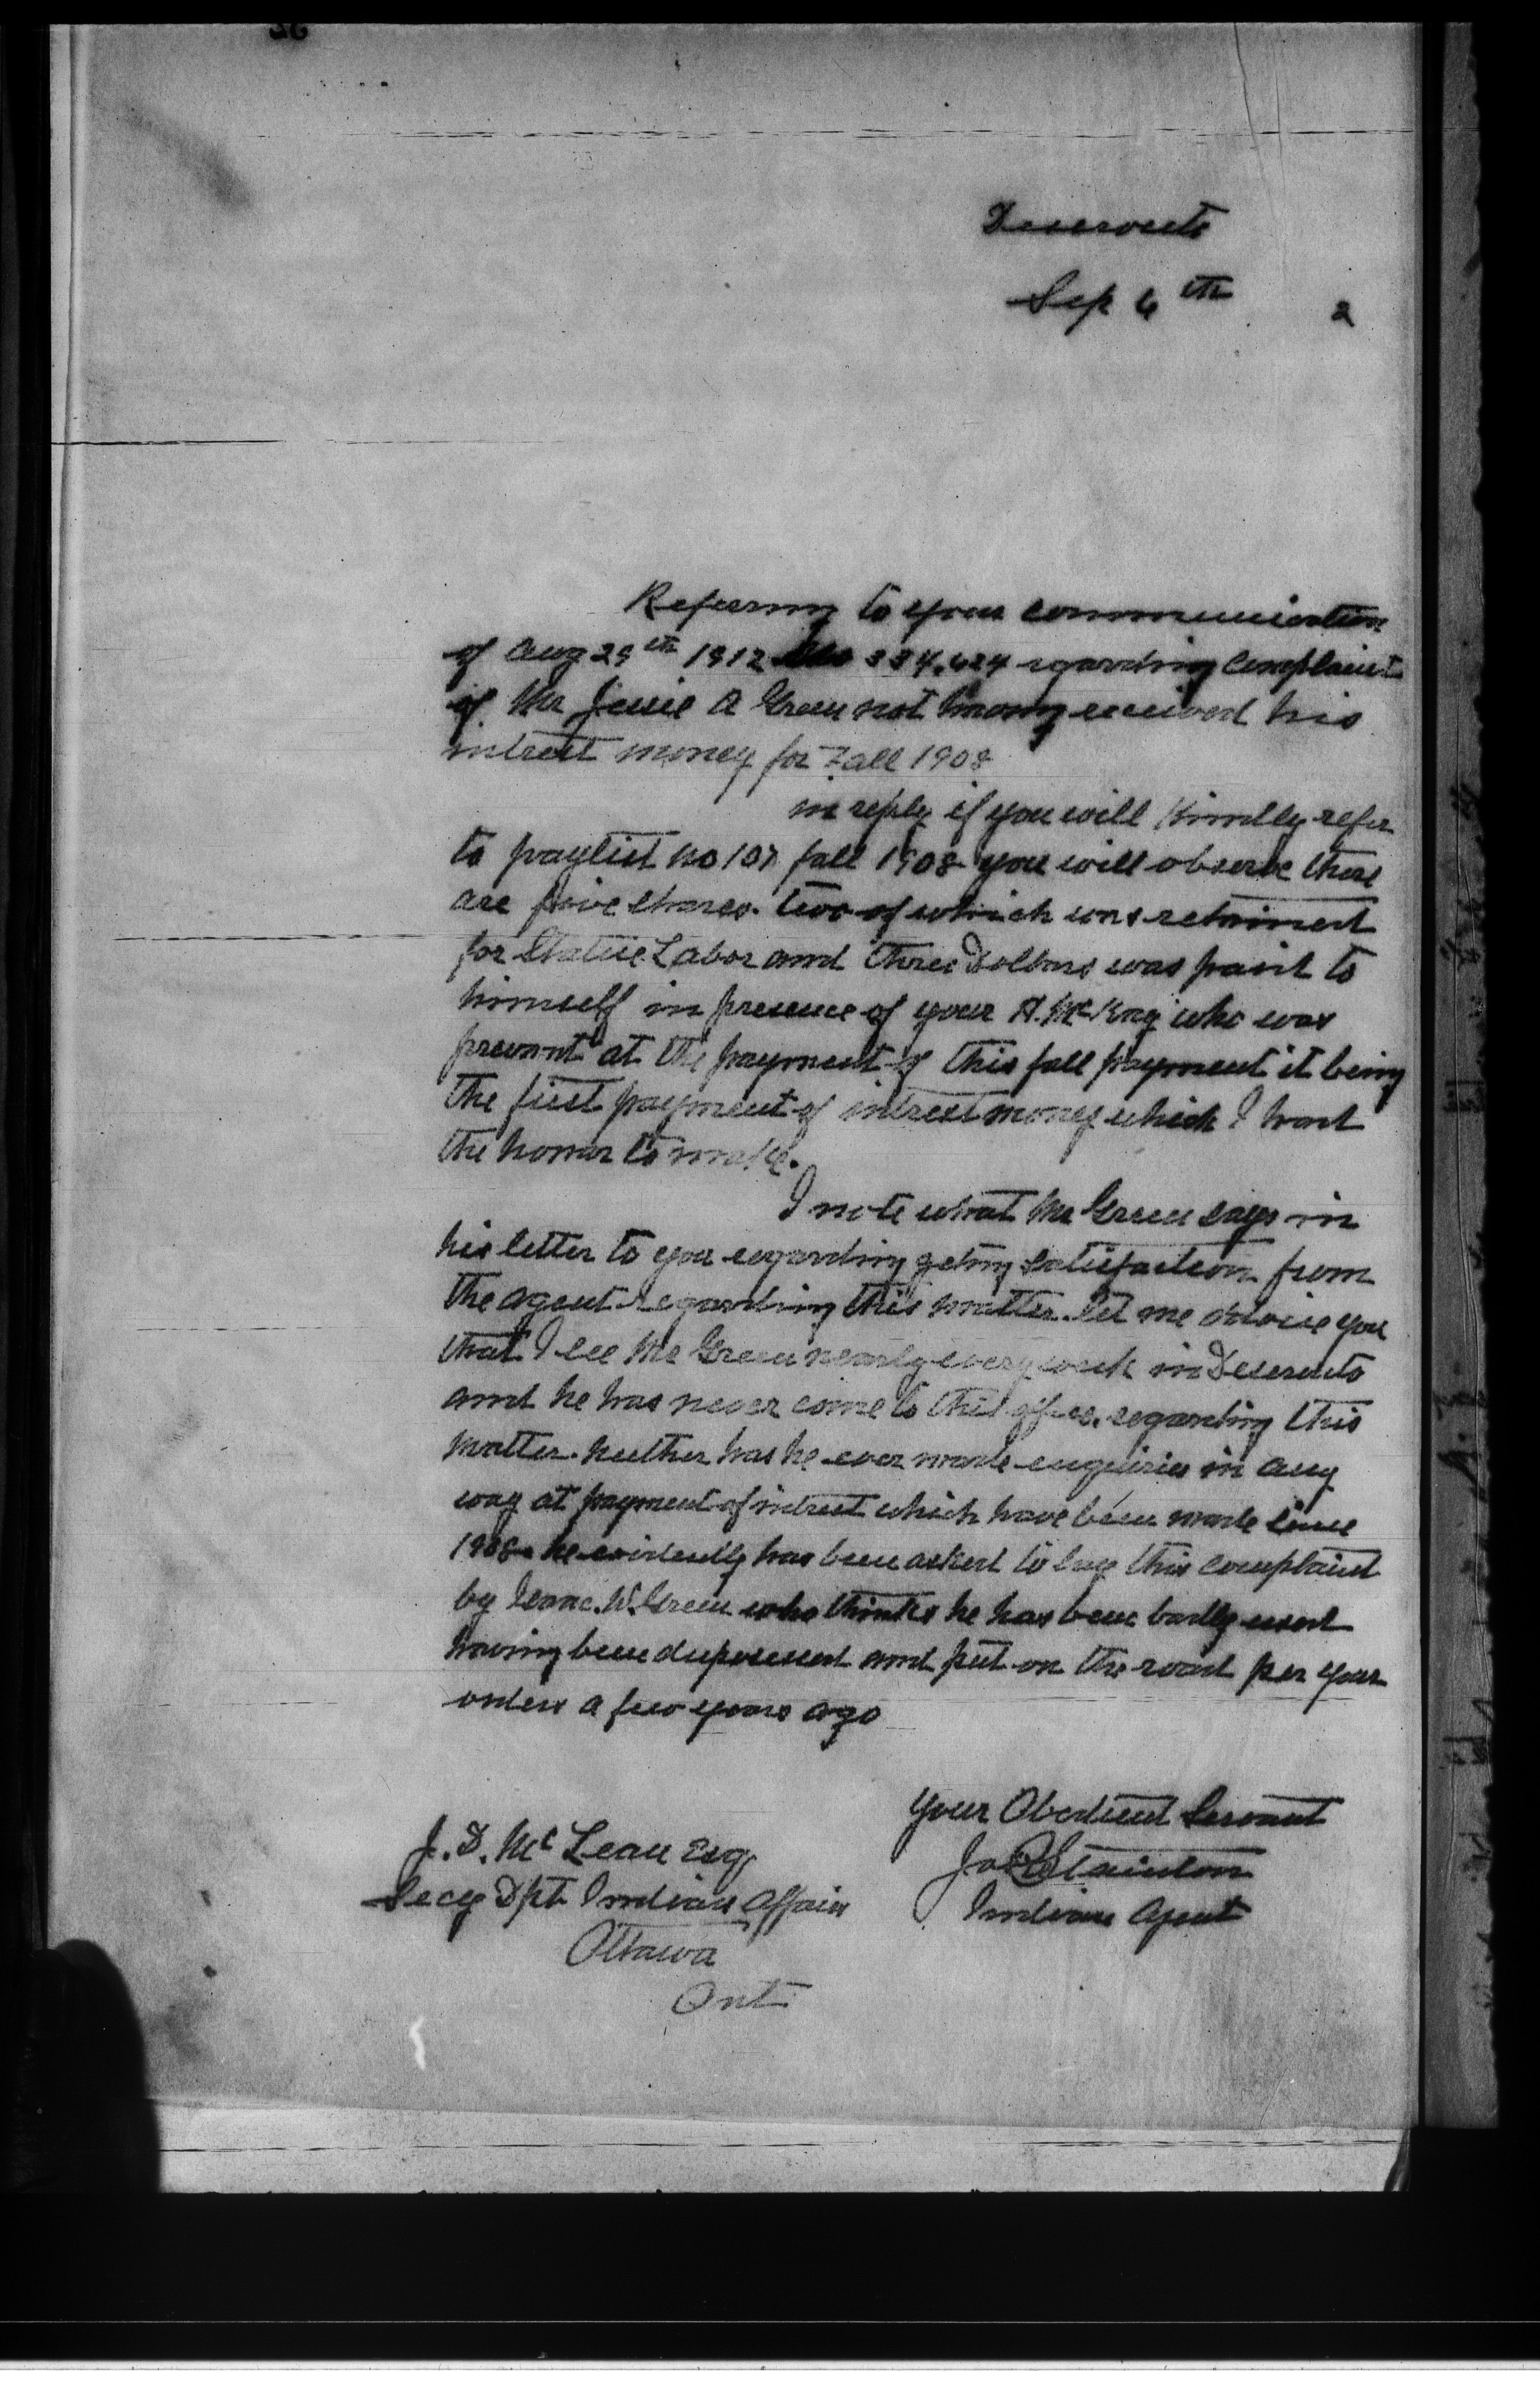 Deseronto
Sep 6th 2
Referring to your communication
of Aug 29th 1912 No 334,624 regarding complaint
of Mr Jessie A Green not having received his
intrest money for Fall 1908
in reply if you will Kindly refer
to paylist no 107 fall 1908 you will observe there
are five shares. two of which was retained
for Statue Labor and three Dollars was paid to
himself in presence of your Mr who was
present at the payment of this fall payment it being
the first payment of intrest money which I had
the honor to make.
I note what Mr Green says in
his letter to you regarding geting satisfaction from
the agent regarding this matter. let me advise you
that I see Mr Green nearly every week in Deseronto
and he has never come to this office. regarding this
matter. neither has he ever made enquiries in any
way at payment of intrest which have been made since
1908. he evidently has been asked to lay this complaint
by Isaac. W. Green who thinks he has been badly used
having been dispossessed and put on the road per your
orders a few years ago
your Obedient Servant
Stainton
Indian Agent
J. D. McLean Esq
Secy Dpt Indian Affairs
Ottawa
Ont